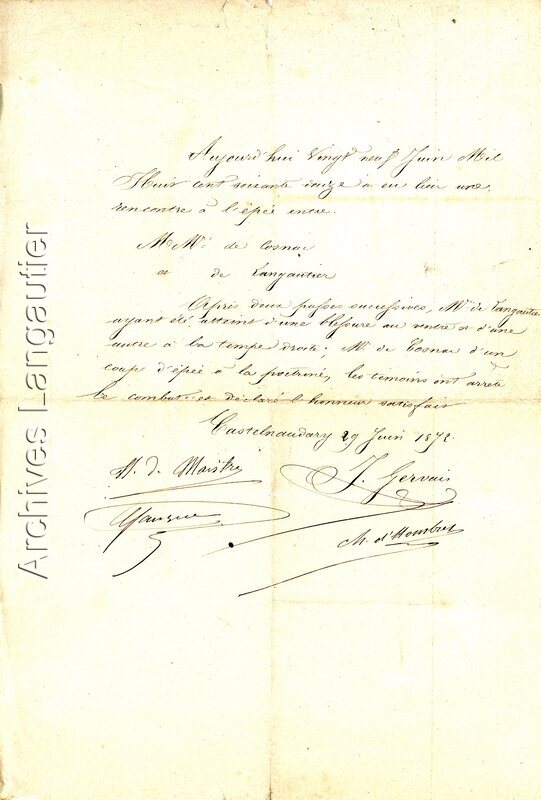 Aujourd'hui Vingt neuf Juin Mil
Huit cent soixante douze a eu lieu une
rencontre à l'épée entre.
M. Mrs. de Cosnac
et de Langautier
Après deux passes successives, Mr. de Langautier
ayant été atteint d'une blessure au ventre et d'une
autre à la tempe droite; Mr. de Cosnac d'un
coup d'épée à la poitrine, les témoins ont arrêté
le combat et déclaré l'honneur satisfait
Castelnaudary 29 Juin 1872.
de Maistre
J. Gervais
d'Hombres
Archives Langautier